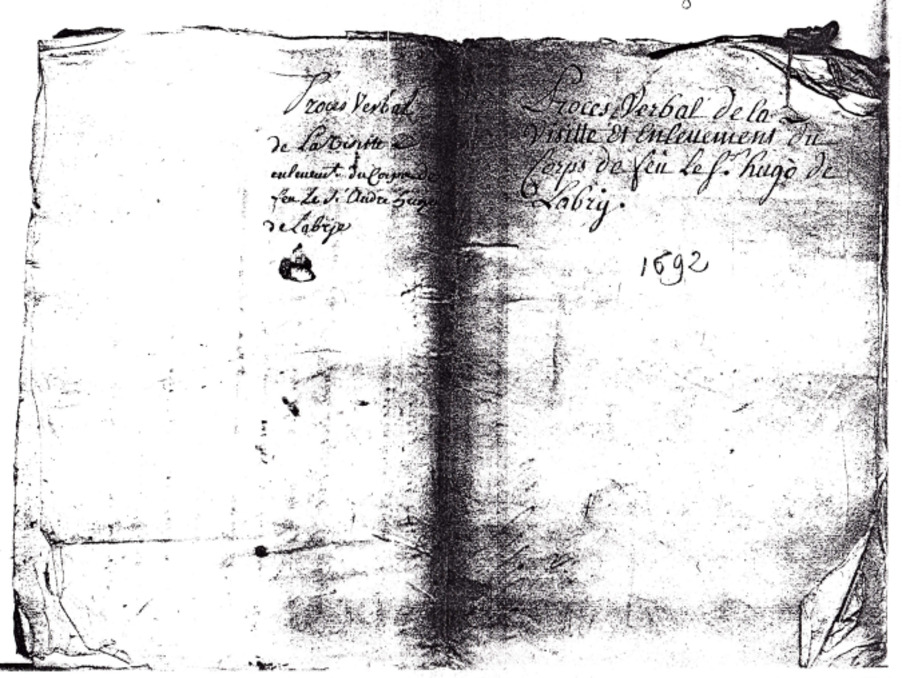 Proces Verbal
de La Visitte &
enlevemt. du Corps de
feu Le Sr. André Hugo
de Labrye
Proces Verbal de la
Visitte et enlevement du
Corps de feu Le Sr. hugo de
Labry.
1692